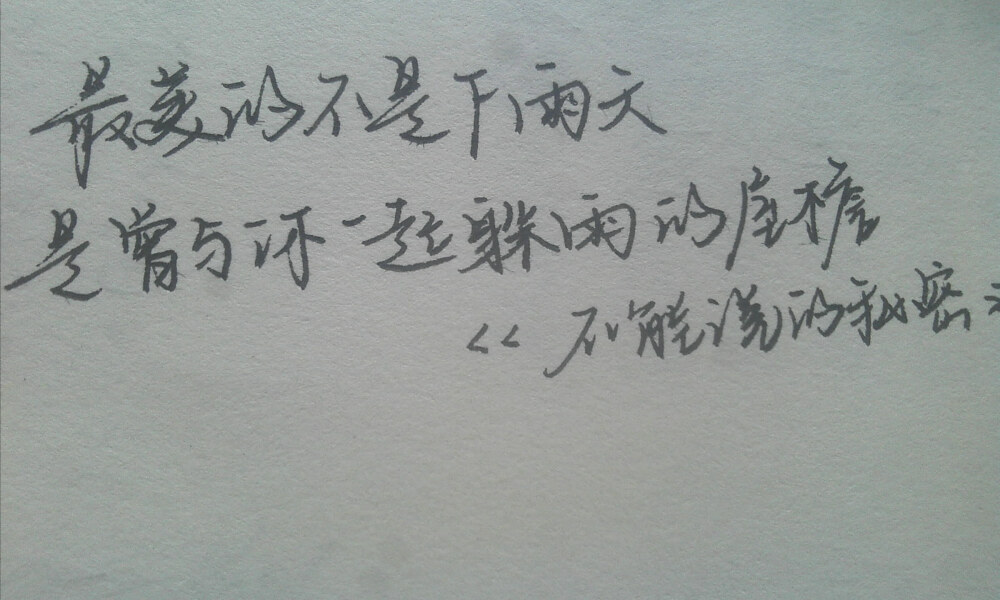 最美的不是下雨天
是曾与你一起躲雨的屋檐
<<不能说的秘密>>